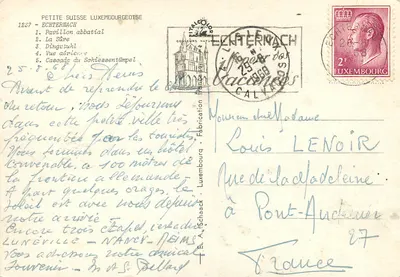 PETITE SUISSE LUXEMBOURGEOISE
1227 - ECHTERNACH
1. Pavillon abbatial
2. La Sûre
3. Dingstuhl
4. Vue aérienne
5. Cascade du Schiessentümpel
25-8-
Chers Amis
Avant de reprendre le
du retour, Nous séjournons
dans cette petite ville très
fréquentée par les touristes
Nous sommes dans un hôtel
convenable à 100 mètres de
la frontière allemande.
A part quelques orages, le
Soleil est avec nous depuis
notre arrivée.
Encore trois Étapes
LUNÉVILLE - NANCY - REIMS
Vous adressons notre amical
Souvenir
E. A. Schaack - Luxembourg - Fabrication
ECHTERNACH
Vacances
CALVADOS
2F
LUXEMBOURG
Monsieur et Madame
Louis LENOIR
Rue de la Madeleine
à Pont-Audemer
27
France